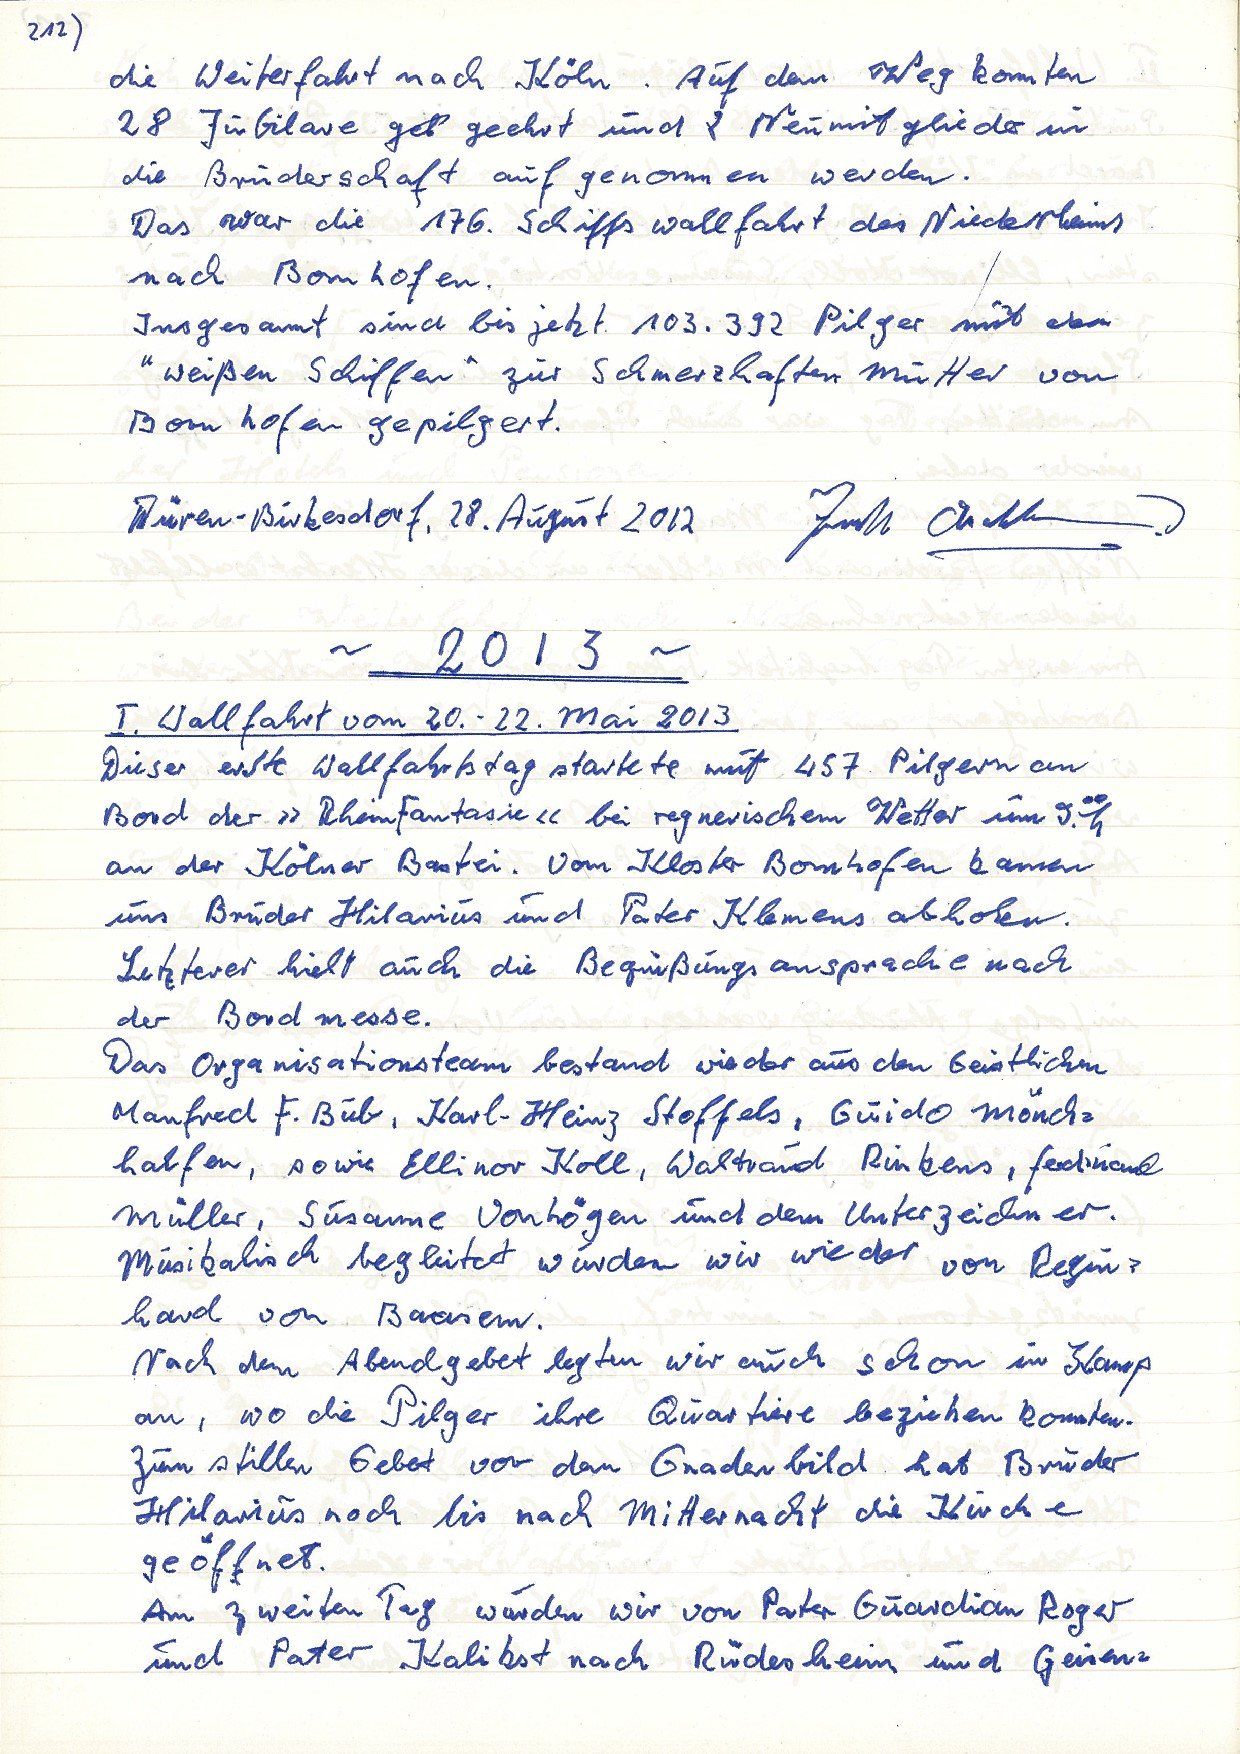 212)
die Weiterfahrt nach Köln. Auf dem Weg konnten
28 Jubilare geehrt und 2 Neumitglieder in
die Bruderschaft aufgenommen werden.
Das war die 176. Schiffswallfahrt des Niederrheins
nach Bornhofen.
Insgesamt sind bis jetzt 103.392 Pilger mit den
"weißen Schiffen" zur Schmerzhaften Mutter von
Bornhofen gepilgert.
Düren-Birkesdorf, 28. August 2012
~ 2013 ~
I. Wallfahrt vom 20.-22. Mai 2013
Dieser erste Wallfahrtstag startete mit 457 Pilgern an
Bord der »RheinFantasie« bei regnerischem Wetter um 9.00h
an der Kölner Bastei. Vom Kloster Bornhofen kamen
uns Bruder Hilarius und Pater Klemens abholen.
Letzterer hielt auch die Begrüßungsansprache nach
der Bordmesse.
Das Organisationsteam bestand wieder aus den Geistlichen
Manfred F. Bub, Karl-Heinz Stoffels, Guido Mönch=
halfen, sowie Ellinor Koll, Waltraud Rinkens, Ferdinand
Müller, Susanne Vonhögen und dem Unterzeichner.
Musikalisch begleitet wurden wir wieder von Regin=
hard von Baasem.
Nach dem Abendgebet legten wir auch schon in Kamp
an, wo die Pilger ihre Quartiere beziehen konnten.
Zum stillen Gebet vor dem Gnadenbild hat Bruder
Hilarius noch bis nach Mitternacht die Kirche
geöffnet.
Am zweiten Tag wurden wir von Pater Guardian Roger
und Pater Kalikst nach Rüdesheim und Geisen=